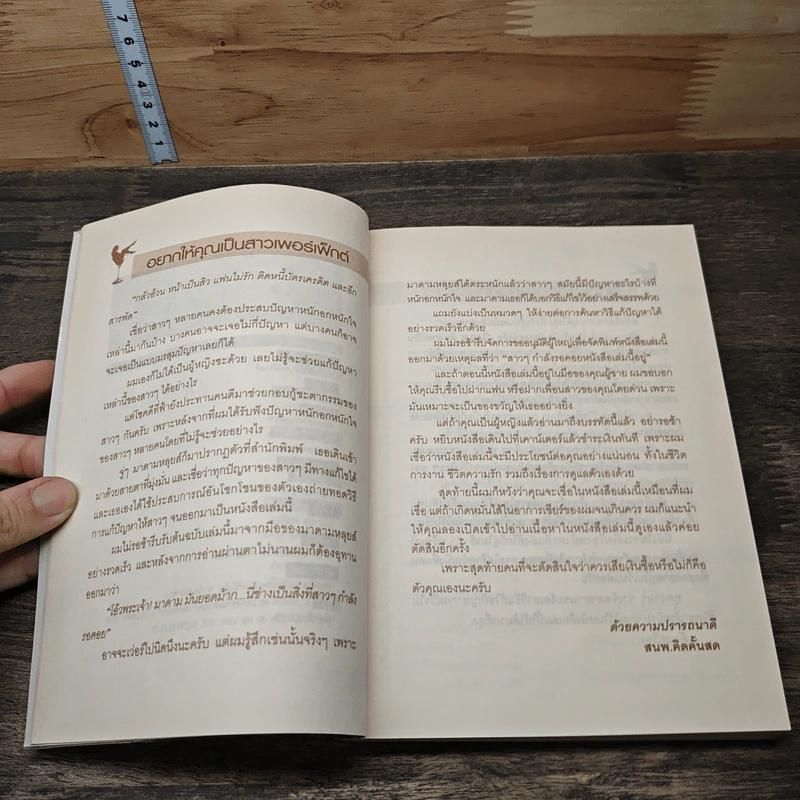 7
6
5
4
3
2
1
อยากให้คุณเป็นสาวเพอร์เฟ็กต์
"กลัวอ้วน หน้าเป็นสิว แฟนไม่รัก ติดหนี้บัตรเครดิต และอีก
สารพัด"
เชื่อว่าสาวๆ หลายคนคงต้องประสบปัญหาหนักอกหนักใจ
เหล่านี้มากันบ้าง บางคนอาจจะเจอไม่กี่ปัญหา แต่บางคนก็อาจ
จะเจอเป็นแบบมรสุมปัญหาเลยก็ได้
ผมเองก็ไม่ได้เป็นผู้หญิงซะด้วย เลยไม่รู้จะช่วยแก้ปัญหา
เหล่านี้ของสาวๆ ได้อย่างไร
แต่โชคดีที่ฟ้ายังประทานคนดีมาช่วยกอบกู้ชะตากรรมของ
สาวๆ กันครับ เพราะหลังจากที่ผมได้รับฟังปัญหาหนักอกหนักใจ
ของสาวๆ หลายคนโดยที่ไม่รู้จะช่วยอย่างไร
จู่ๆ มาดามหลุยส์ก็มาปรากฏตัวที่สำนักพิมพ์ เธอเดินเข้า
มาด้วยสายตาที่มุ่งมั่น และเชื่อว่าทุกปัญหาของสาวๆ มีทางแก้ไขได้
และเธอเองได้ใช้ประสบการณ์อันโชกโชนของตัวเองถ่ายทอดวิธี
การแก้ปัญหาให้สาวๆ จนออกมาเป็นหนังสือเล่มนี้
ผมไม่รอช้ารีบรับต้นฉบับเล่มนี้มาจากมือของมาดามหลุยส์
อย่างรวดเร็ว และหลังจากการอ่านผ่านตาไม่นานผมก็ต้องอุทาน
ออกมาว่า
"โอ้วพระเจ้า! มาดาม มันยอดม้าก...นี่ช่างเป็นสิ่งที่สาวๆ กำลัง
รอคอย"
อาจจะเว่อร์ไปนิดนึงนะครับ แต่ผมรู้สึกเช่นนั้นจริงๆ เพราะ
มาดามหลุยส์ได้ตระหนักแล้วว่าสาวๆ สมัยนี้มีปัญหาอะไรบ้างที่
หนักอกหนักใจ และมาดามเธอก็ได้บอกวิธีแก้ไขไว้อย่างเสร็จสรรพด้วย
แถมยังแบ่งเป็นหมวดๆ ให้ง่ายต่อการค้นหาวิธีแก้ปัญหาได้
อย่างรวดเร็วอีกด้วย
ผมไม่รอช้ารีบขออนุมัติผู้ใหญ่เพื่อจัดพิมพ์หนังสือเล่มนี้
ออกมาด้วยเหตุผลที่ว่า "สาวๆ กำลังรอคอยหนังสือเล่มนี้อยู่"
และถ้าตอนนี้หนังสือเล่มนี้อยู่ในมือของคุณผู้ชาย ผมขอบอก
ให้คุณรีบซื้อไปฝากแฟน หรือฝากเพื่อนสาวของคุณโดยด่วน เพราะ
มันเหมาะจะเป็นของขวัญให้เธออย่างยิ่ง
แต่ถ้าคุณเป็นผู้หญิงแล้วอ่านมาถึงบรรทัดนี้แล้ว อย่ารอช้า
ครับ หยิบหนังสือเดินไปที่เคาน์เตอร์แล้วชำระเงินทันที เพราะผม
เชื่อว่าหนังสือเล่มนี้จะมีประโยชน์ต่อคุณอย่างแน่นอน ทั้งในชีวิต
การงาน ชีวิตความรัก รวมถึงเรื่องการดูแลตัวเองด้วย
สุดท้ายนี้ผมก็หวังว่าคุณจะเชื่อในหนังสือเล่มนี้เหมือนที่ผม
เชื่อ แต่ถ้าเกิดหมั่นไส้ในอาการเชียร์ของผมจนเกินควร ผมก็แนะนำ
ให้คุณลองเปิดเข้าไปอ่านเนื้อหาในหนังสือเล่มนี้ดูเองแล้วค่อย
ตัดสินอีกครั้ง
เพราะสุดท้ายคนที่จะตัดสินใจว่าควรเสียเงินซื้อหรือไม่ก็คือ
ตัวคุณเองนะครับ
ด้วยความปรารถนาดี
สนพ.คิดคั้นสด